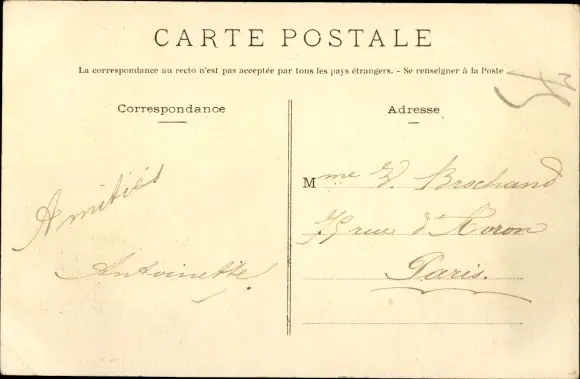 CARTE POSTALE
La correspondance au recto n'est pas acceptée par tous les pays étrangers. - Se renseigner à la Poste
Correspondance
Amitiés
Antoinette
Adresse
Mme Brochand
rue d'Avron
Paris.